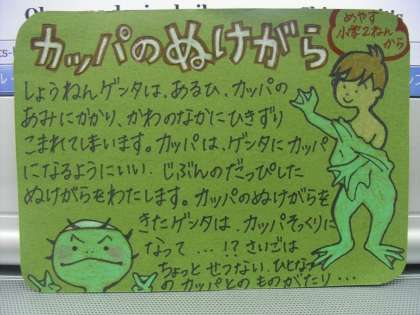 カッパのぬけがら
めやす
小学2ねん
から
しょうねんゲンタは、あるひ、カッパの
あみにかかり、かわのなかにひきずり
こまれてしまいます。カッパは、ゲンタにカッパ
になるようにいい、じぶんのだっぴした
ぬけがらをわたします。カッパのぬけがらを
きたゲンタは、カッパそっくりに
なって…!?さいごは
ちょっとせつない、ひとなつ
のカッパとのものがたり…